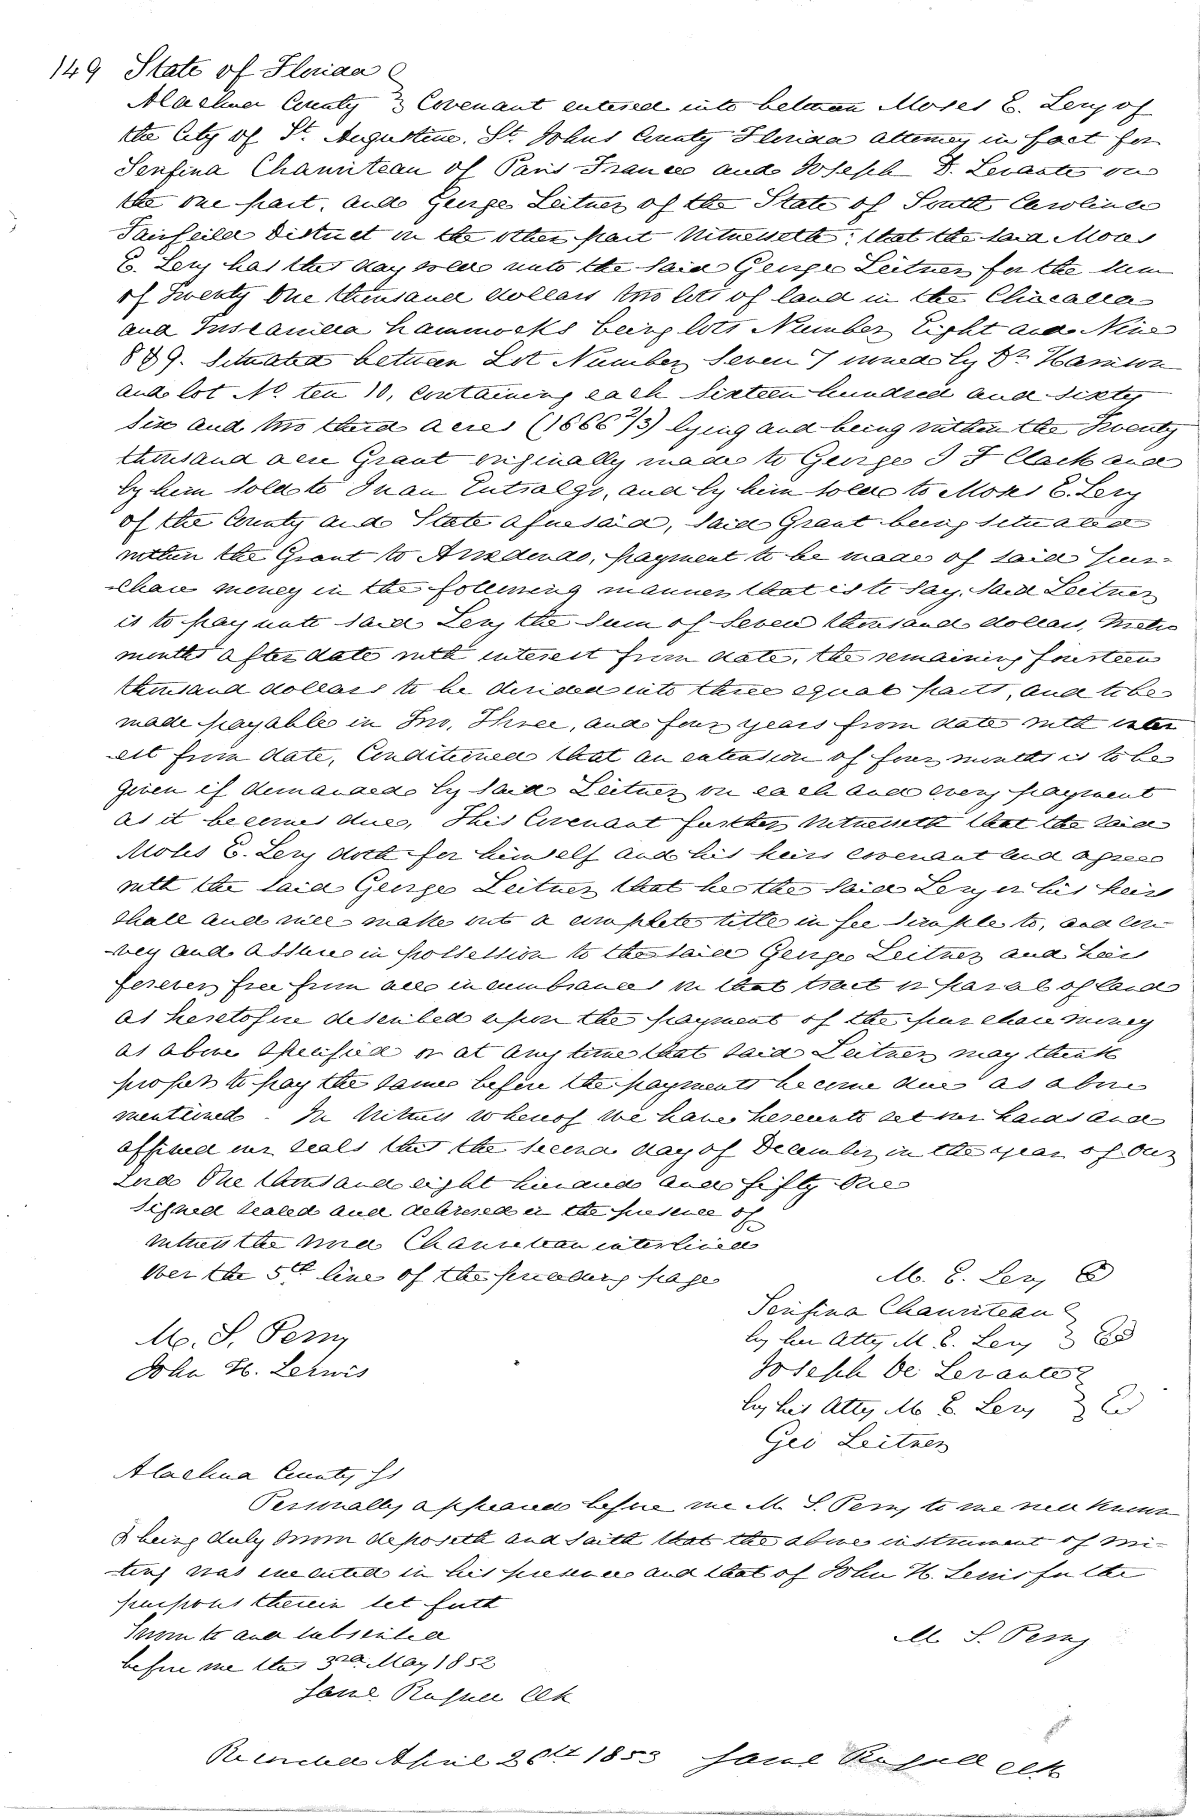 149 State of Florida
Alachua County } Covenant entered into between Moses E. Levy of
the City of St. Augustine. St. Johns County Florida attorney in fact for
Serfina Chauviteau of Paris France and Joseph D. Levante on
the one part, and George Leitner of the State of South Carolina
Fairfeild District on the other part Witnesseth; that the said Moses
E. Levy has this day sold unto the said George Leitner for the sum
of Twenty One thousand dollars two lots of land in the Chicalla
and Tuscawilla hammocks being lots Number Eight and Nine
8 & 9. Situated between Lot Number Seven 7 owned by Dr. Harrison
and lot No. ten 10, containing each Sixteen hundred and sixty
six and two third acres (1666 2/3) lying and being within the Twenty
thousand acre Grant originally made to George I F Clark and
by him sold to Juan Entralgo, and by him sold to Moses E. Levy
of the County and State aforesaid, said Grant being situated
within the Grant to Arredondo, payment to be made of said pur-
-chase money in the following manner that is to say, said Leitner
is to pay unto said Levy the sum of Seven thousand dollars, twelve
months after date with interest from date, the remaining fourteen
thousand dollars to be divided into three equal parts, and to be
made payable in Two, Three, and four years from date with inter
-est from date, Conditioned that an extension of four months is to be
given if demanded by said Leitner on each and every payment
as it becomes due, This Covenant further Witnesseth that the said
Moses E. Levy doth for himself and his heirs covenant and agree
with the said George Leitner that he the said Levy or his heirs
shall and will make out a complete title in fee simple to, and con-
-vey and assure in possession to the said George Leitner and heirs
forever free from all incumbrances on that tract or parcel of land
as heretofore described upon the payment of the purchase money
as above specified or at any time that said Leitner may think
proper to pay the same before the payments become due as above
mentioned. In Witness whereof we have hereunto set our hands and
affixed our seals this the second day of December in the year of Our
Lord One thousand eight hundred and fifty One
Signed sealed and delivered in the presence of
witness the word Chauviteau interlined
over the 5th line of the preceding page
M. E. Levy
Serfina Chauviteau
by her Atty M. E. Levy
M. S. Perry
John H. Lewis
Joseph De Levante
by his Atty M E. Levy
Geo Leitner
Alachua County Ss
Personally appeared before me M. S. Perry to me well known
& being duly sworn deposeth and saith that the above instrument of wri-
-ting was executed in his presence and that of John H. Lewis for the
purposes therein set forth
Sworn to and subscribed
M S. Perry
before me this 3rd May 1852
Saml. Russell Clk
Recorded April 26th 1853 Saml Russell Clk